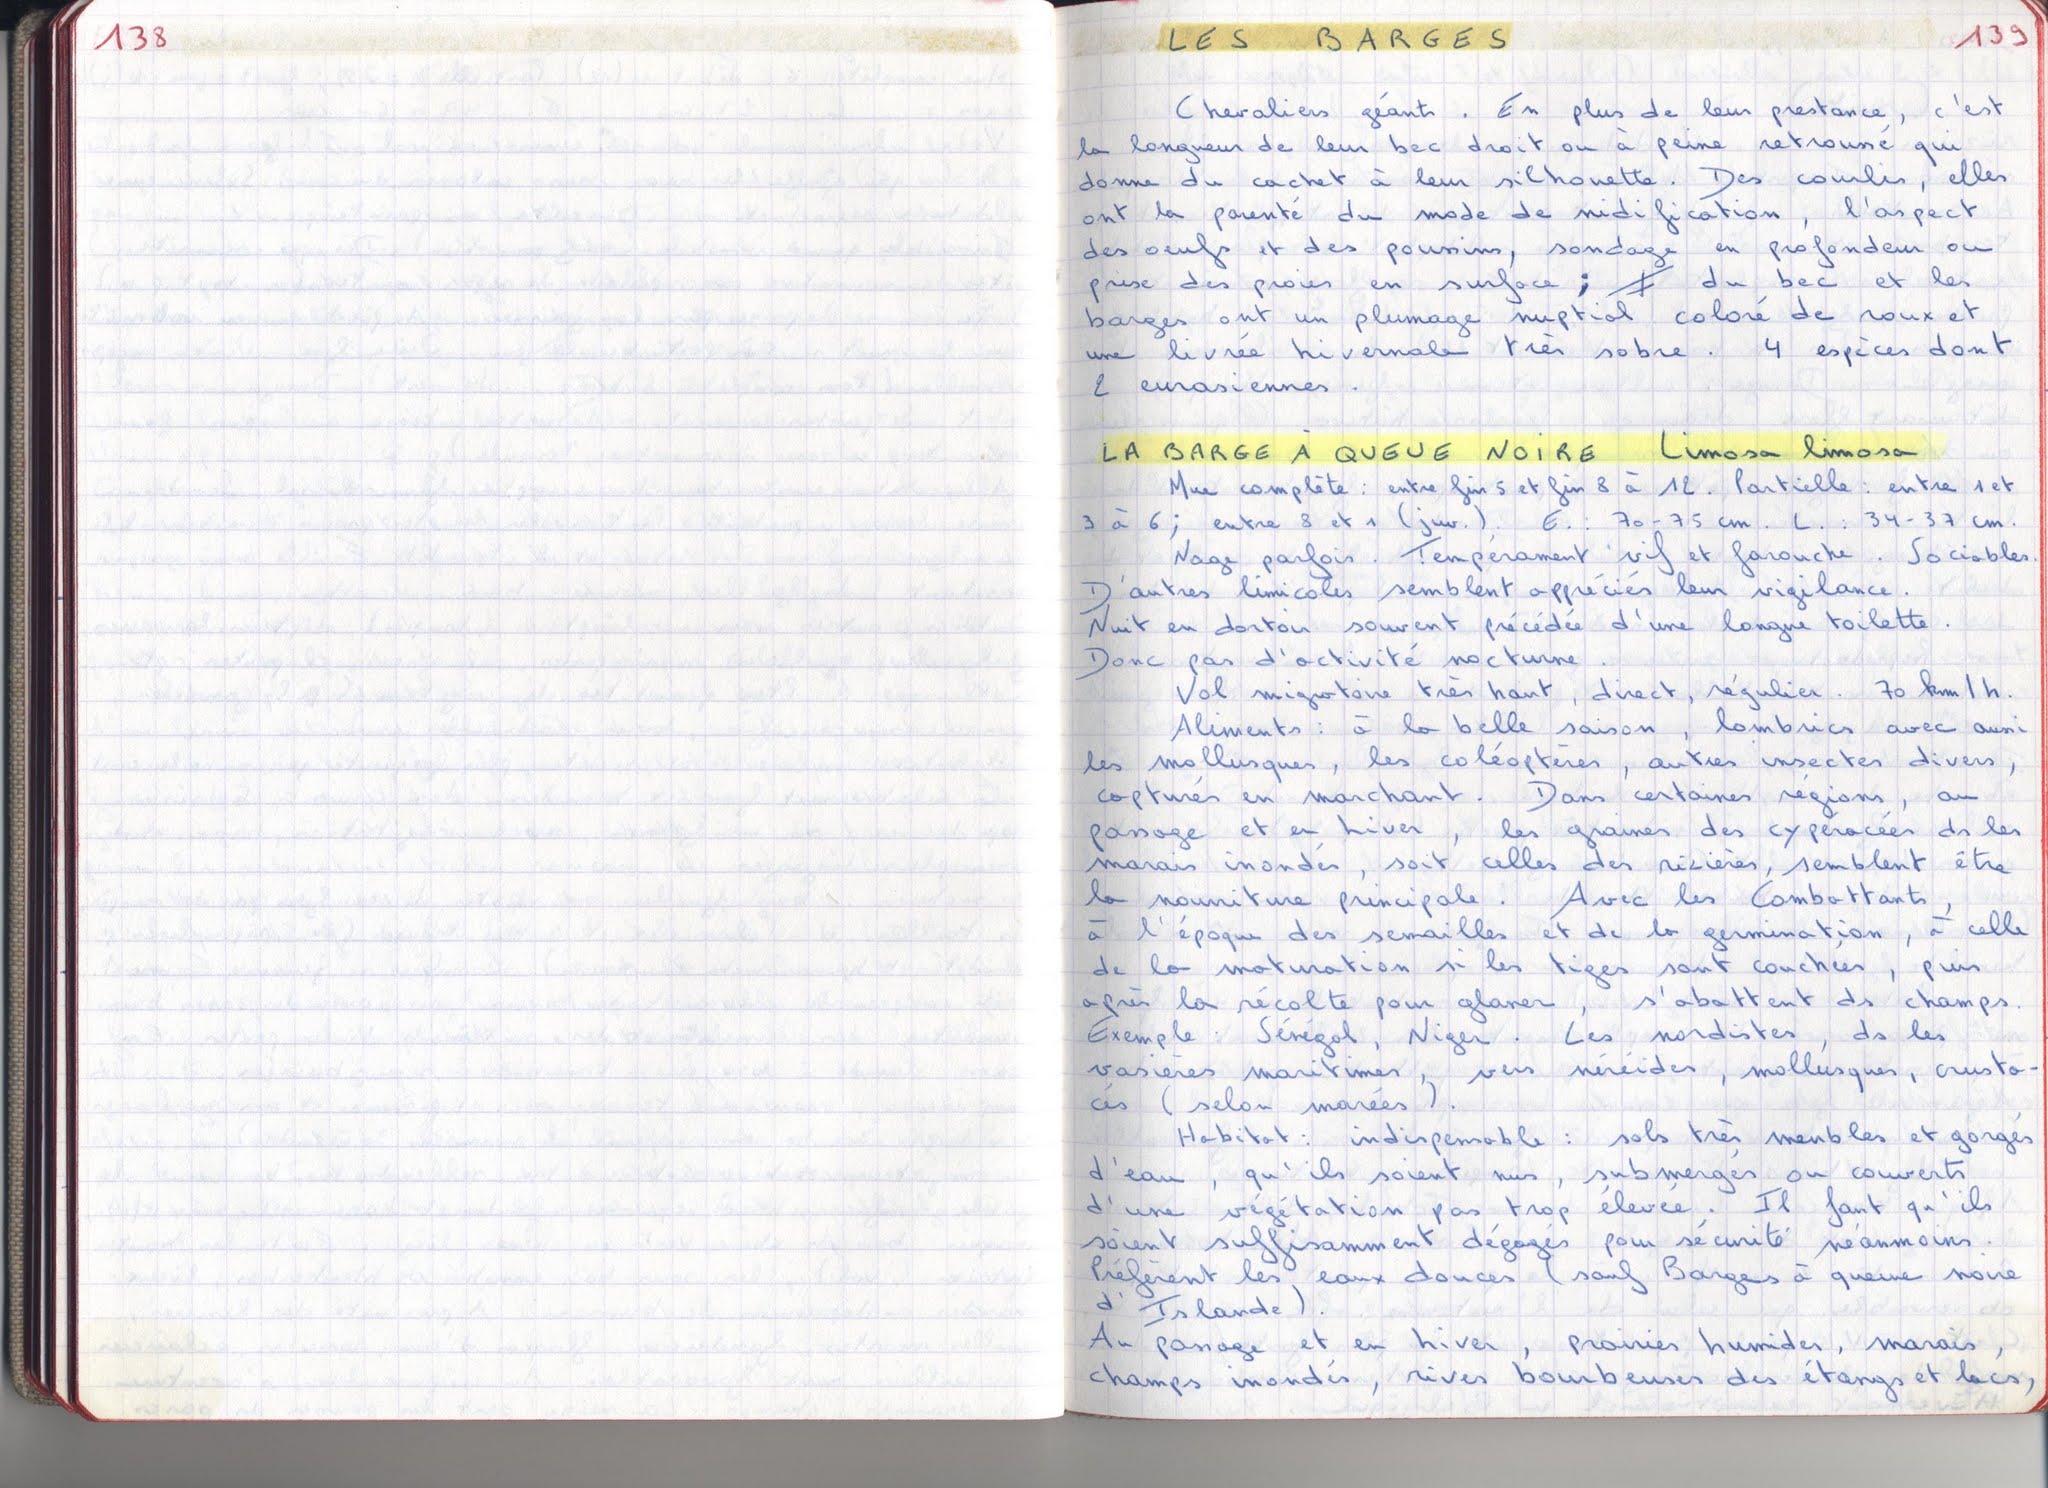 138
LES BARGES
139
Chevaliers géants. En plus de leur prestance, c'est
la longueur de leur bec droit ou à peine retroussé qui
donne du cachet à leur silhouette. Des courlis, elles
ont la parenté du mode de nidification, l'aspect
des oeufs et des poussins, sondage en profondeur ou
prise des proies en surface ; ≠ du bec et les
barges ont un plumage nuptial coloré de roux et
une livrée hivernale très sobre. 4 espèces dont
2 eurasiennes.
LA BARGE À QUEUE NOIRE Limosa limosa
Mue complète : entre fin 5 et fin 8 à 12. Partielle : entre 1 et
3 à 6 ; entre 8 et 1 (juv.). E. : 70-75 cm. L. : 34-37 cm.
Nage parfois. Tempérament vif et farouche. Sociables.
D'autres limicoles semblent appréciés leur vigilance.
Nuit en dortoir souvent précédée d'une longue toilette.
Donc pas d'activité nocturne.
Vol migratoire très haut, direct, régulier. 70 km/h.
Aliments : à la belle saison, lombrics avec aussi
les mollusques, les coléoptères, autres insectes divers,
capturés en marchant. Dans certaines régions, au
passage et en hiver, les graines des cypéracées ds les
marais inondés, soit celles des rizières, semblent être
la nourriture principale. Avec les Combattants,
à l'époque des semailles et de la germination, à celle
de la maturation si les tiges sont couchées, puis
après la récolte pour glaner, s'abattent ds champs.
Exemple : Sénégal, Niger. Les nordistes, ds les
vasières maritimes, vers néréides, mollusques, crusta-
cés (selon marées).
Habitat : indispensable : sols très meubles et gorgés
d'eau, qu'ils soient nus, submergés ou couverts
d'une végétation pas trop élevée. Il faut qu'ils
soient suffisamment dégagés pour sécurité néanmoins.
Préfèrent les eaux douces (sauf Barges à queue noire
d'Islande).
Au passage et en hiver, prairies humides, marais,
champs inondés, rives bourbeuses des étangs et lacs,